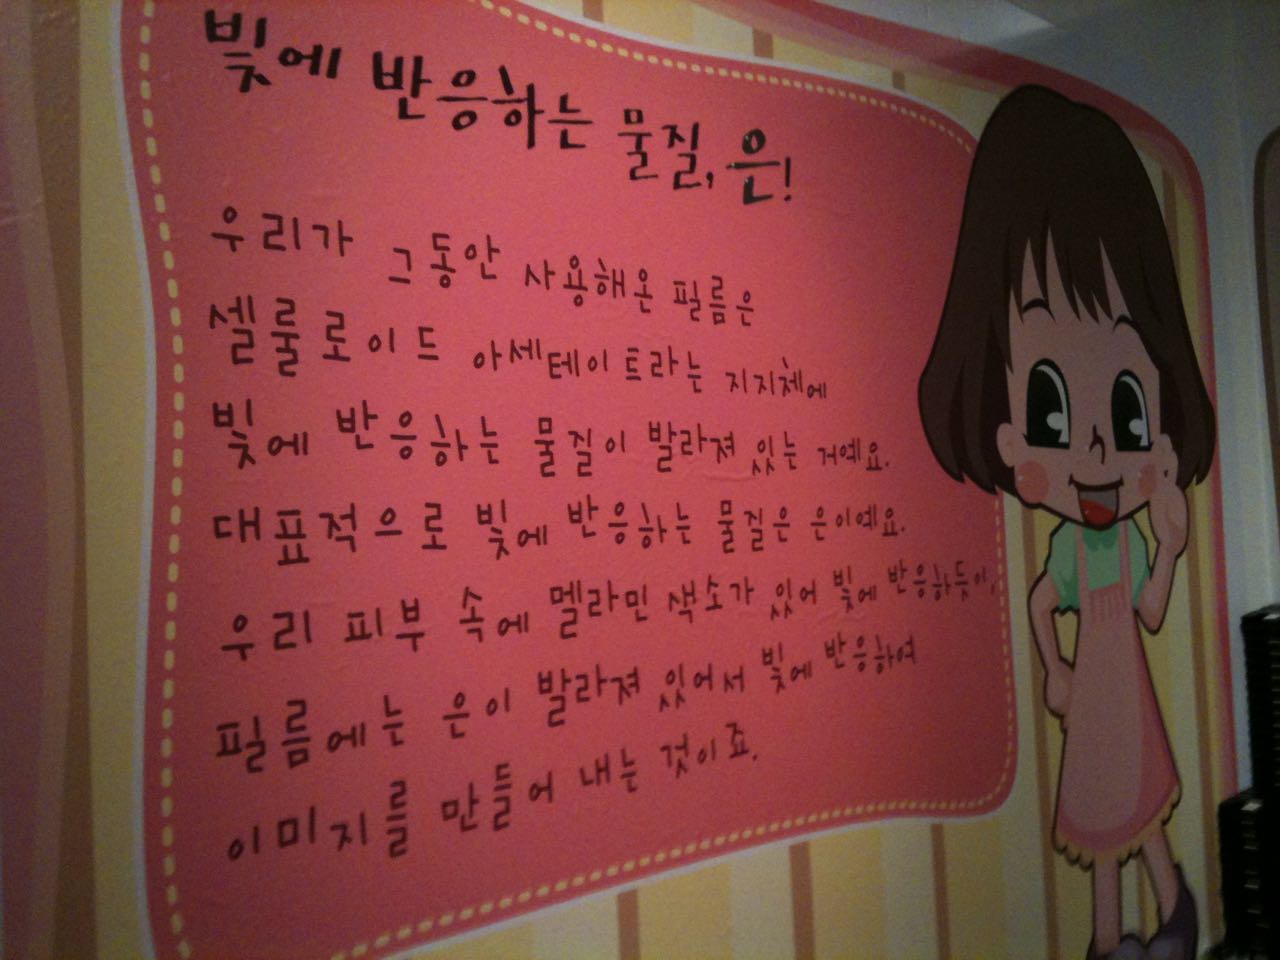 빛에 반응하는 물질, 은!
우리가 그동안 사용해온 필름은
셀룰로이드 아세테이트라는 지지체에
빛에 반응하는 물질이 발라져 있는 거예요.
대표적으로 빛에 반응하는 물질은 은이예요.
우리 피부 속에 멜라민 색소가 있어 빛에 반응하듯이,
필름에는 은이 발라져 있어서 빛에 반응하여
이미지를 만들어 내는 것이죠.